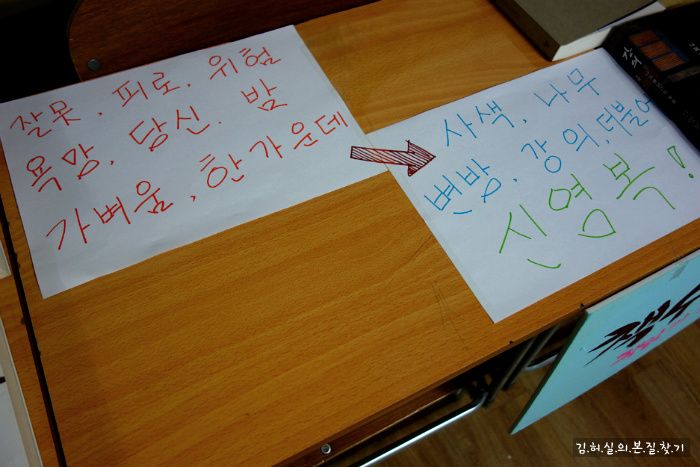 잘못. 피로. 위험
욕망. 당신. 밤
가벼움, 한가운데
사색, 나무
변방, 강의, 더불어
신영복!
강의
김.허.실.의.본.질.찾.기